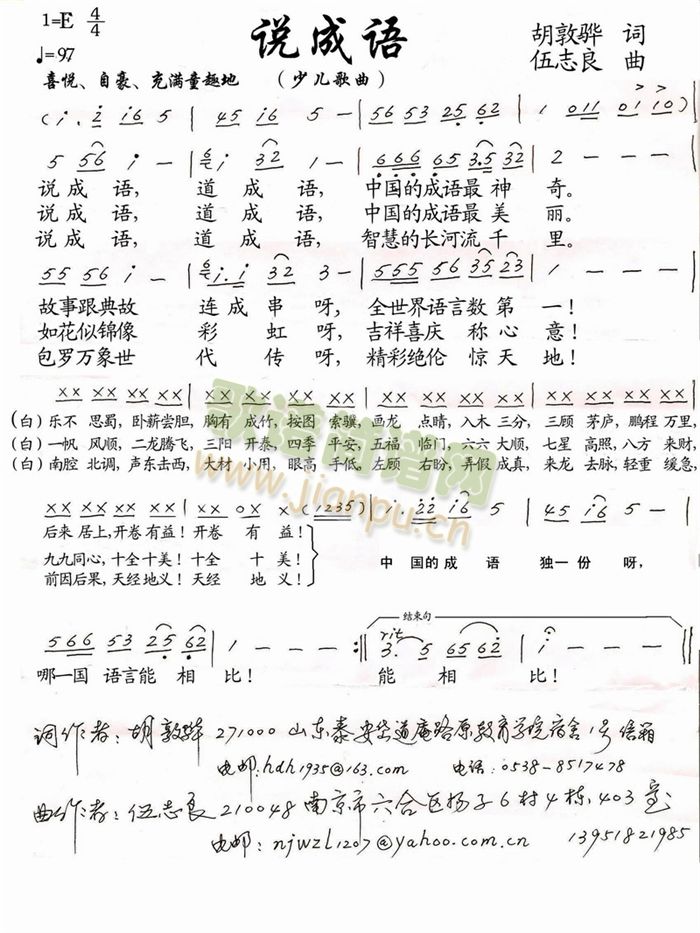 1=E 4/4
♩=97
说成语
胡敦骅 词
伍志良 曲
喜悦、自豪、充满童趣地
(少儿歌曲)
说 成 语, 道 成 语, 中国的成语最 神 奇。
说 成 语, 道 成 语, 中国的成语最 美 丽。
说 成 语, 道 成 语, 智慧的长河流 千 里。
故事跟典故 连 成 串 呀, 全世界语言数 第 一!
如花似锦像 彩 虹 呀, 吉祥喜庆 称 心 意!
包罗万象世 代 传 呀, 精彩绝伦 惊 天 地!
(白) 乐不 思蜀, 卧薪尝胆, 胸有 成竹, 按图 索骥, 画龙 点睛, 入木 三分, 三顾 茅庐, 鹏程 万里,
(白) 一帆 风顺, 二龙腾飞, 三阳 开泰, 四季 平安, 五福 临门, 六六 大顺, 七星 高照, 八方 来财,
(白) 南腔 北调, 声东击西, 大材 小用, 眼高 手低, 左顾 右盼, 弄假 成真, 来龙 去脉, 轻重 缓急,
后来 居上, 开卷 有益! 开卷 有 益!
九九同心, 十全 十美! 十全 十 美!
前因后果, 天经 地义! 天经 地 义!
中 国 的 成 语 独 一 份 呀,
结束句
rit
哪一国 语言能 相 比! 能 相 比!
词作者: 胡敦骅 271000 山东泰安岱道庵路原教育学院宿舍1号信箱
电邮: hdh1935@163.com 电话: 0538-8517478
曲作者: 伍志良 210048 南京市六合区扬子6村4栋, 403室
电邮: njwzl1207@yahoo.com.cn 13951821985
歌谱简谱网
www.jianpu.cn